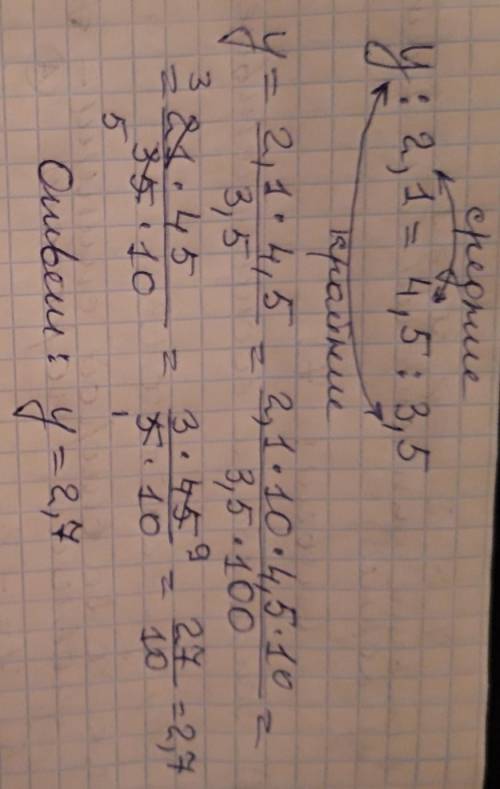 средние
y : 2,1 = 4,5 : 3,5
крайние
y = 2,1·4,5 / 3,5 = 2,1·10·4,5·10 / 3,5·100 =
= 3 21·45 / 5 35·10 = 3·45 9 / 1 5·10 = 27 / 10 = 2,7
Ответ: y = 2,7